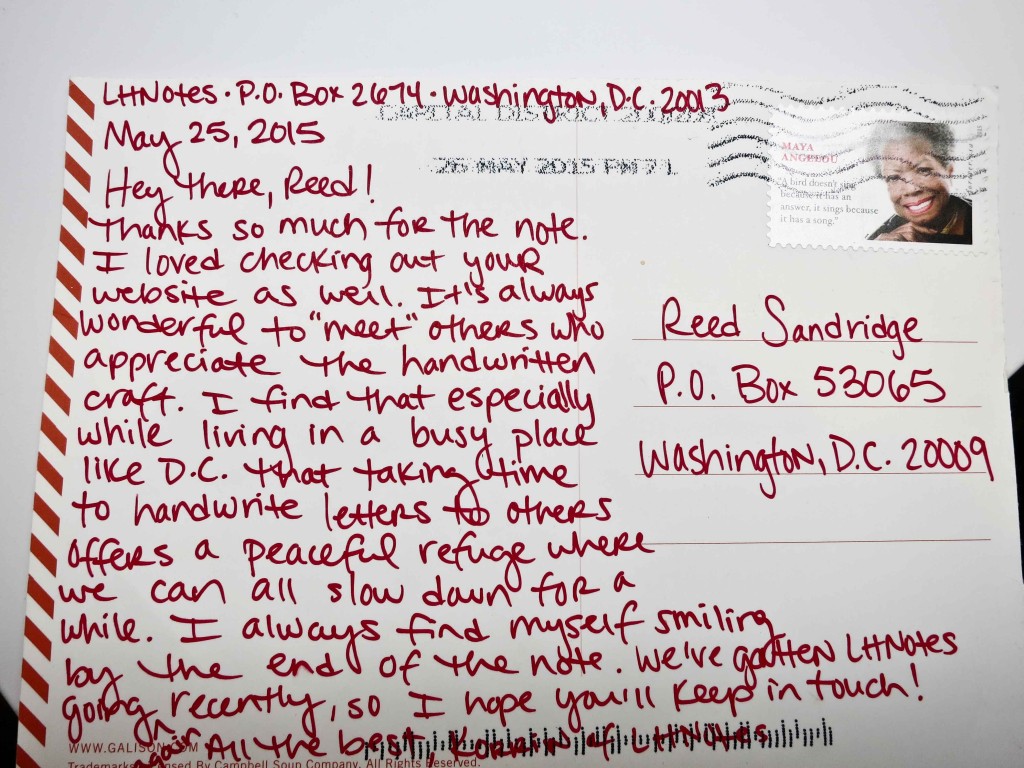 LHNotes · P.O. Box 2674 · Washington, D.C. 20013
May 25, 2015
CAPITAL DISTRICT
26 MAY 2015 PM 7 L
MAYA
ANGELOU
"A bird doesn't sing
because it has an
answer, it sings because
it has a song."
Hey there, Reed!
Thanks so much for the note.
I loved checking out your
website as well. It's always
wonderful to "meet" others who
appreciate the handwritten
craft. I find that especially
while living in a busy place
like D.C. that taking time
to handwrite letters to others
offers a peaceful refuge where
we can all slow down for a
while. I always find myself smiling
by the end of the note. We've gotten LHNotes
going again recently, so I hope you'll keep in touch!
All the best, of LHNotes
Reed Sandridge
P.O. Box 53065
Washington, D.C. 20009
WWW.GALISON.COM
Trademarks Licensed By Campbell Soup Company. All Rights Reserved.